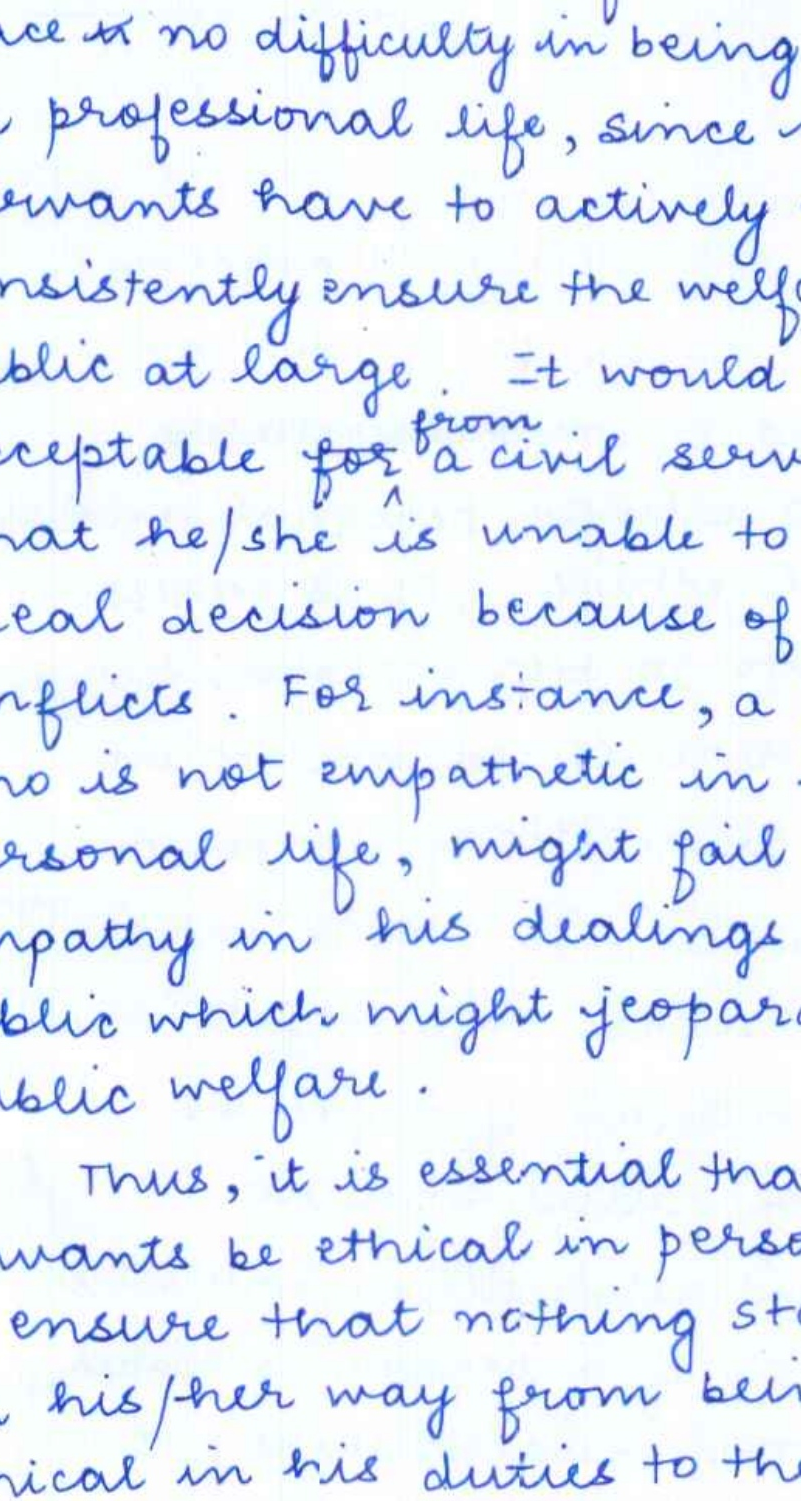 ce no difficulty in being
professional life, since
rvants have to actively
nsistently ensure the welf
blic at large. It would
ceptable for from a civil serv
hat he/she is unable to
ical decision because of
nflicts. For instance, a
ho is not empathetic in
rsonal life, might fail
mpathy in his dealings
blic which might jeopar
ublic welfare.
Thus, it is essential tha
wants be ethical in perso
ensure that nothing sta
his/her way from bein
hical in his duties to the